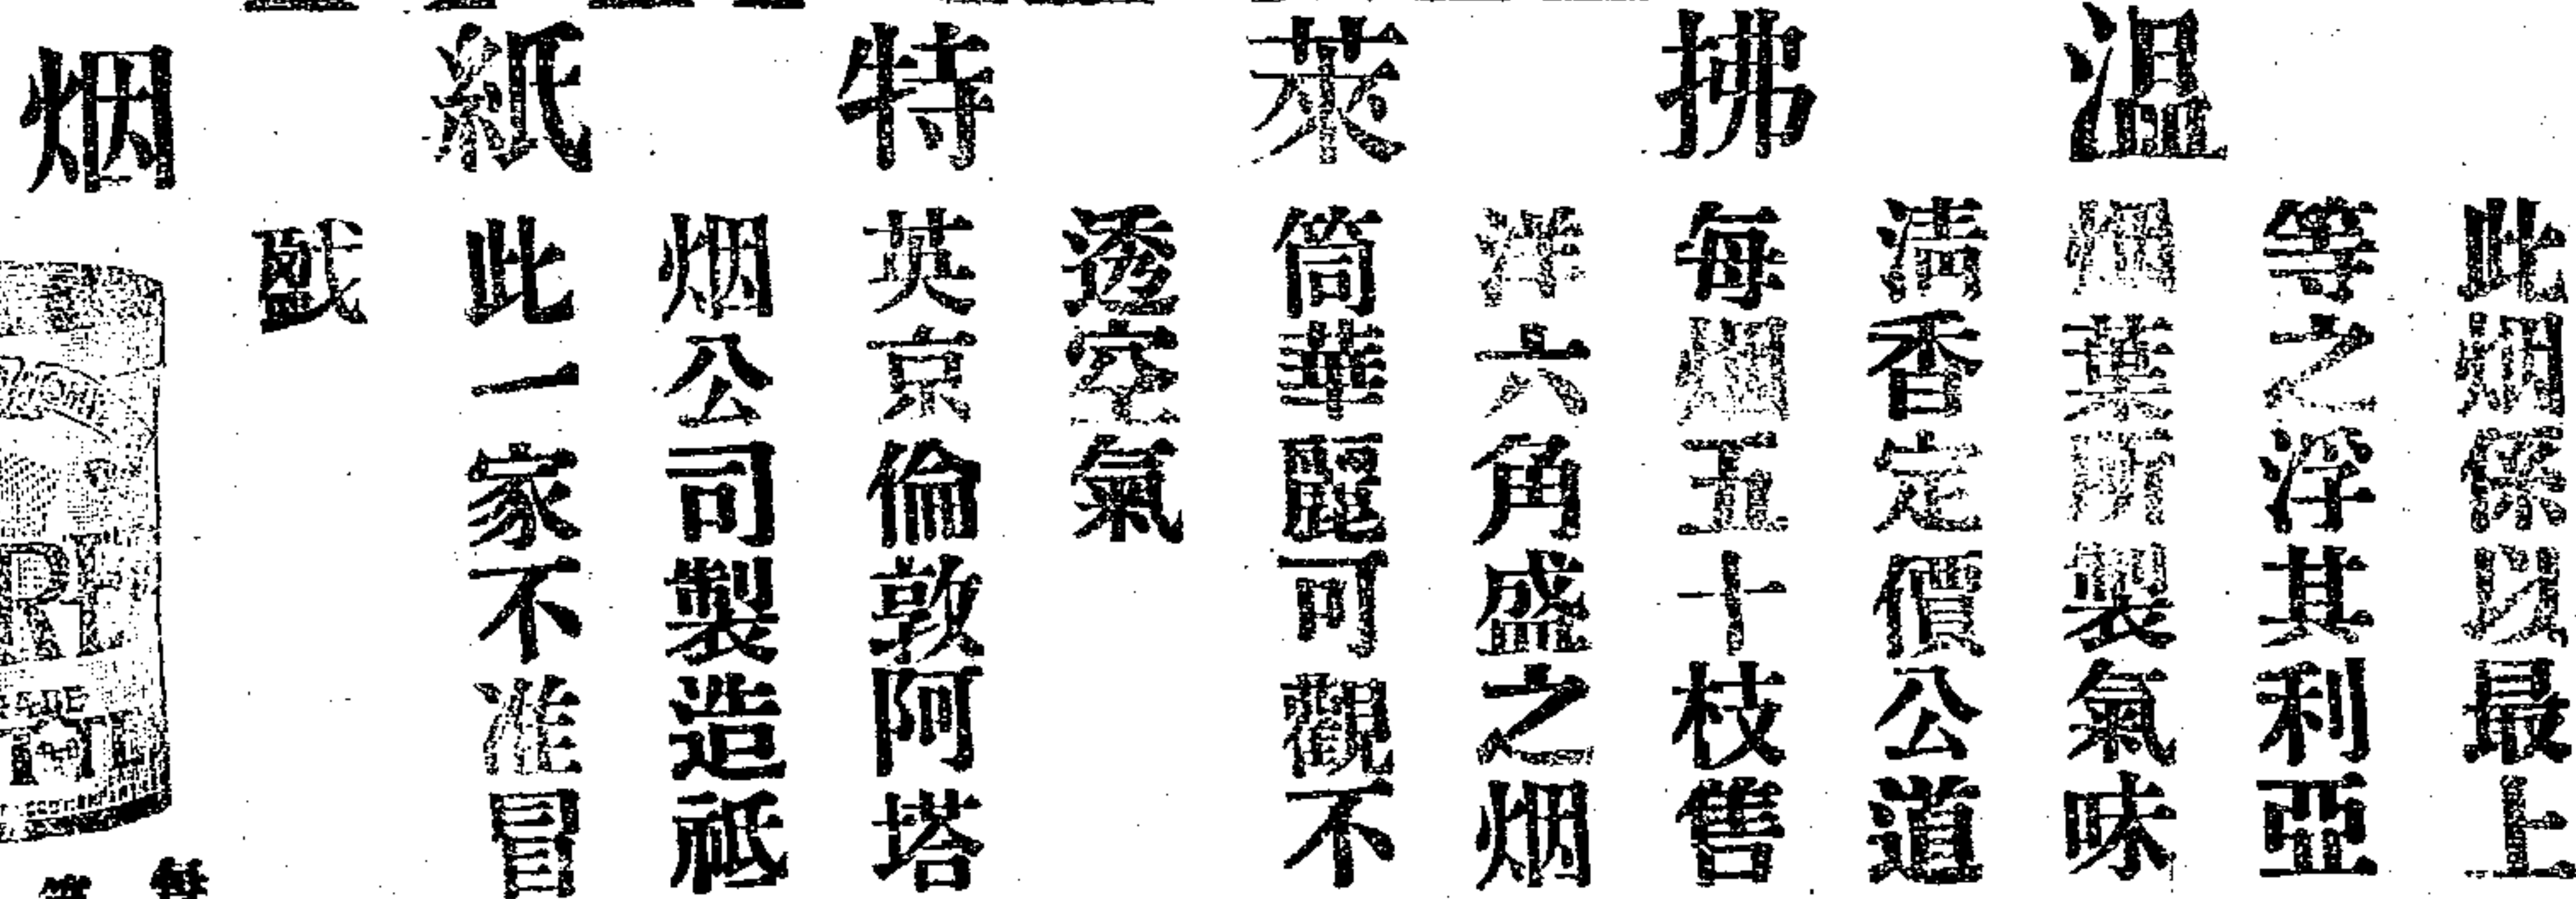 温拂萊特紙烟
此烟係以最上
等之浮其利亞
烟葉所製氣味
清香定價公道
每烟五十枝售
洋六角盛之烟
筒華麗可觀不
透空氣
英京倫敦阿塔
烟公司製造祗
此一家不准冒
戤